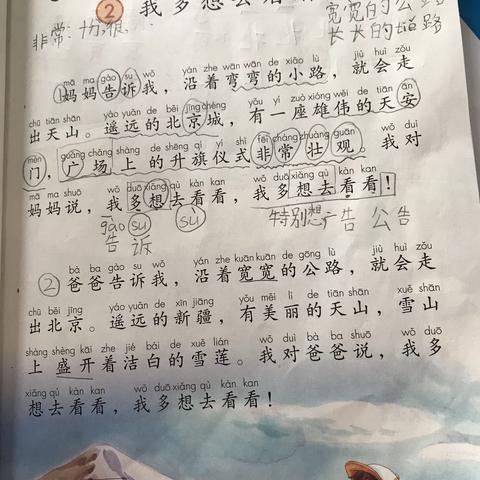 ② 我多想去看
宽宽的公路
非常:十分,很
长长的道路
mā ma gào su wǒ yán zhe wān wān de xiǎo lù jiù huì zǒu
①妈妈告诉我,沿着弯弯的小路,就会走
chū tiān shān yáo yuǎn de běi jīng chéng yǒu yí zuò xióng wěi de tiān ān
出天山。遥远的北京城,有一座雄伟的天安
mén guǎng chǎng shàng de shēng qí yí shì fēi cháng zhuàng guān wǒ duì
门,广场上的升旗仪式非常壮观。我对
mā ma shuō wǒ duō xiǎng qù kàn kan wǒ duō xiǎng qù kàn kan
妈妈说,我多想去看看,我多想去看看!
gào su su 特别想 广告 公告
告诉
bà ba gào su wǒ yán zhe kuān kuān de gōng lù jiù huì zǒu
②爸爸告诉我,沿着宽宽的公路,就会走
chū běi jīng yáo yuǎn de xīn jiāng yǒu měi lì de tiān shān xuě shān
出北京。遥远的新疆,有美丽的天山,雪山
shàng shèng kāi zhe jié bái de xuě lián wǒ duì bà ba shuō wǒ duō
上盛开着洁白的雪莲。我对爸爸说,我多
xiǎng qù kàn kan wǒ duō xiǎng qù kàn kan
想去看看,我多想去看看!